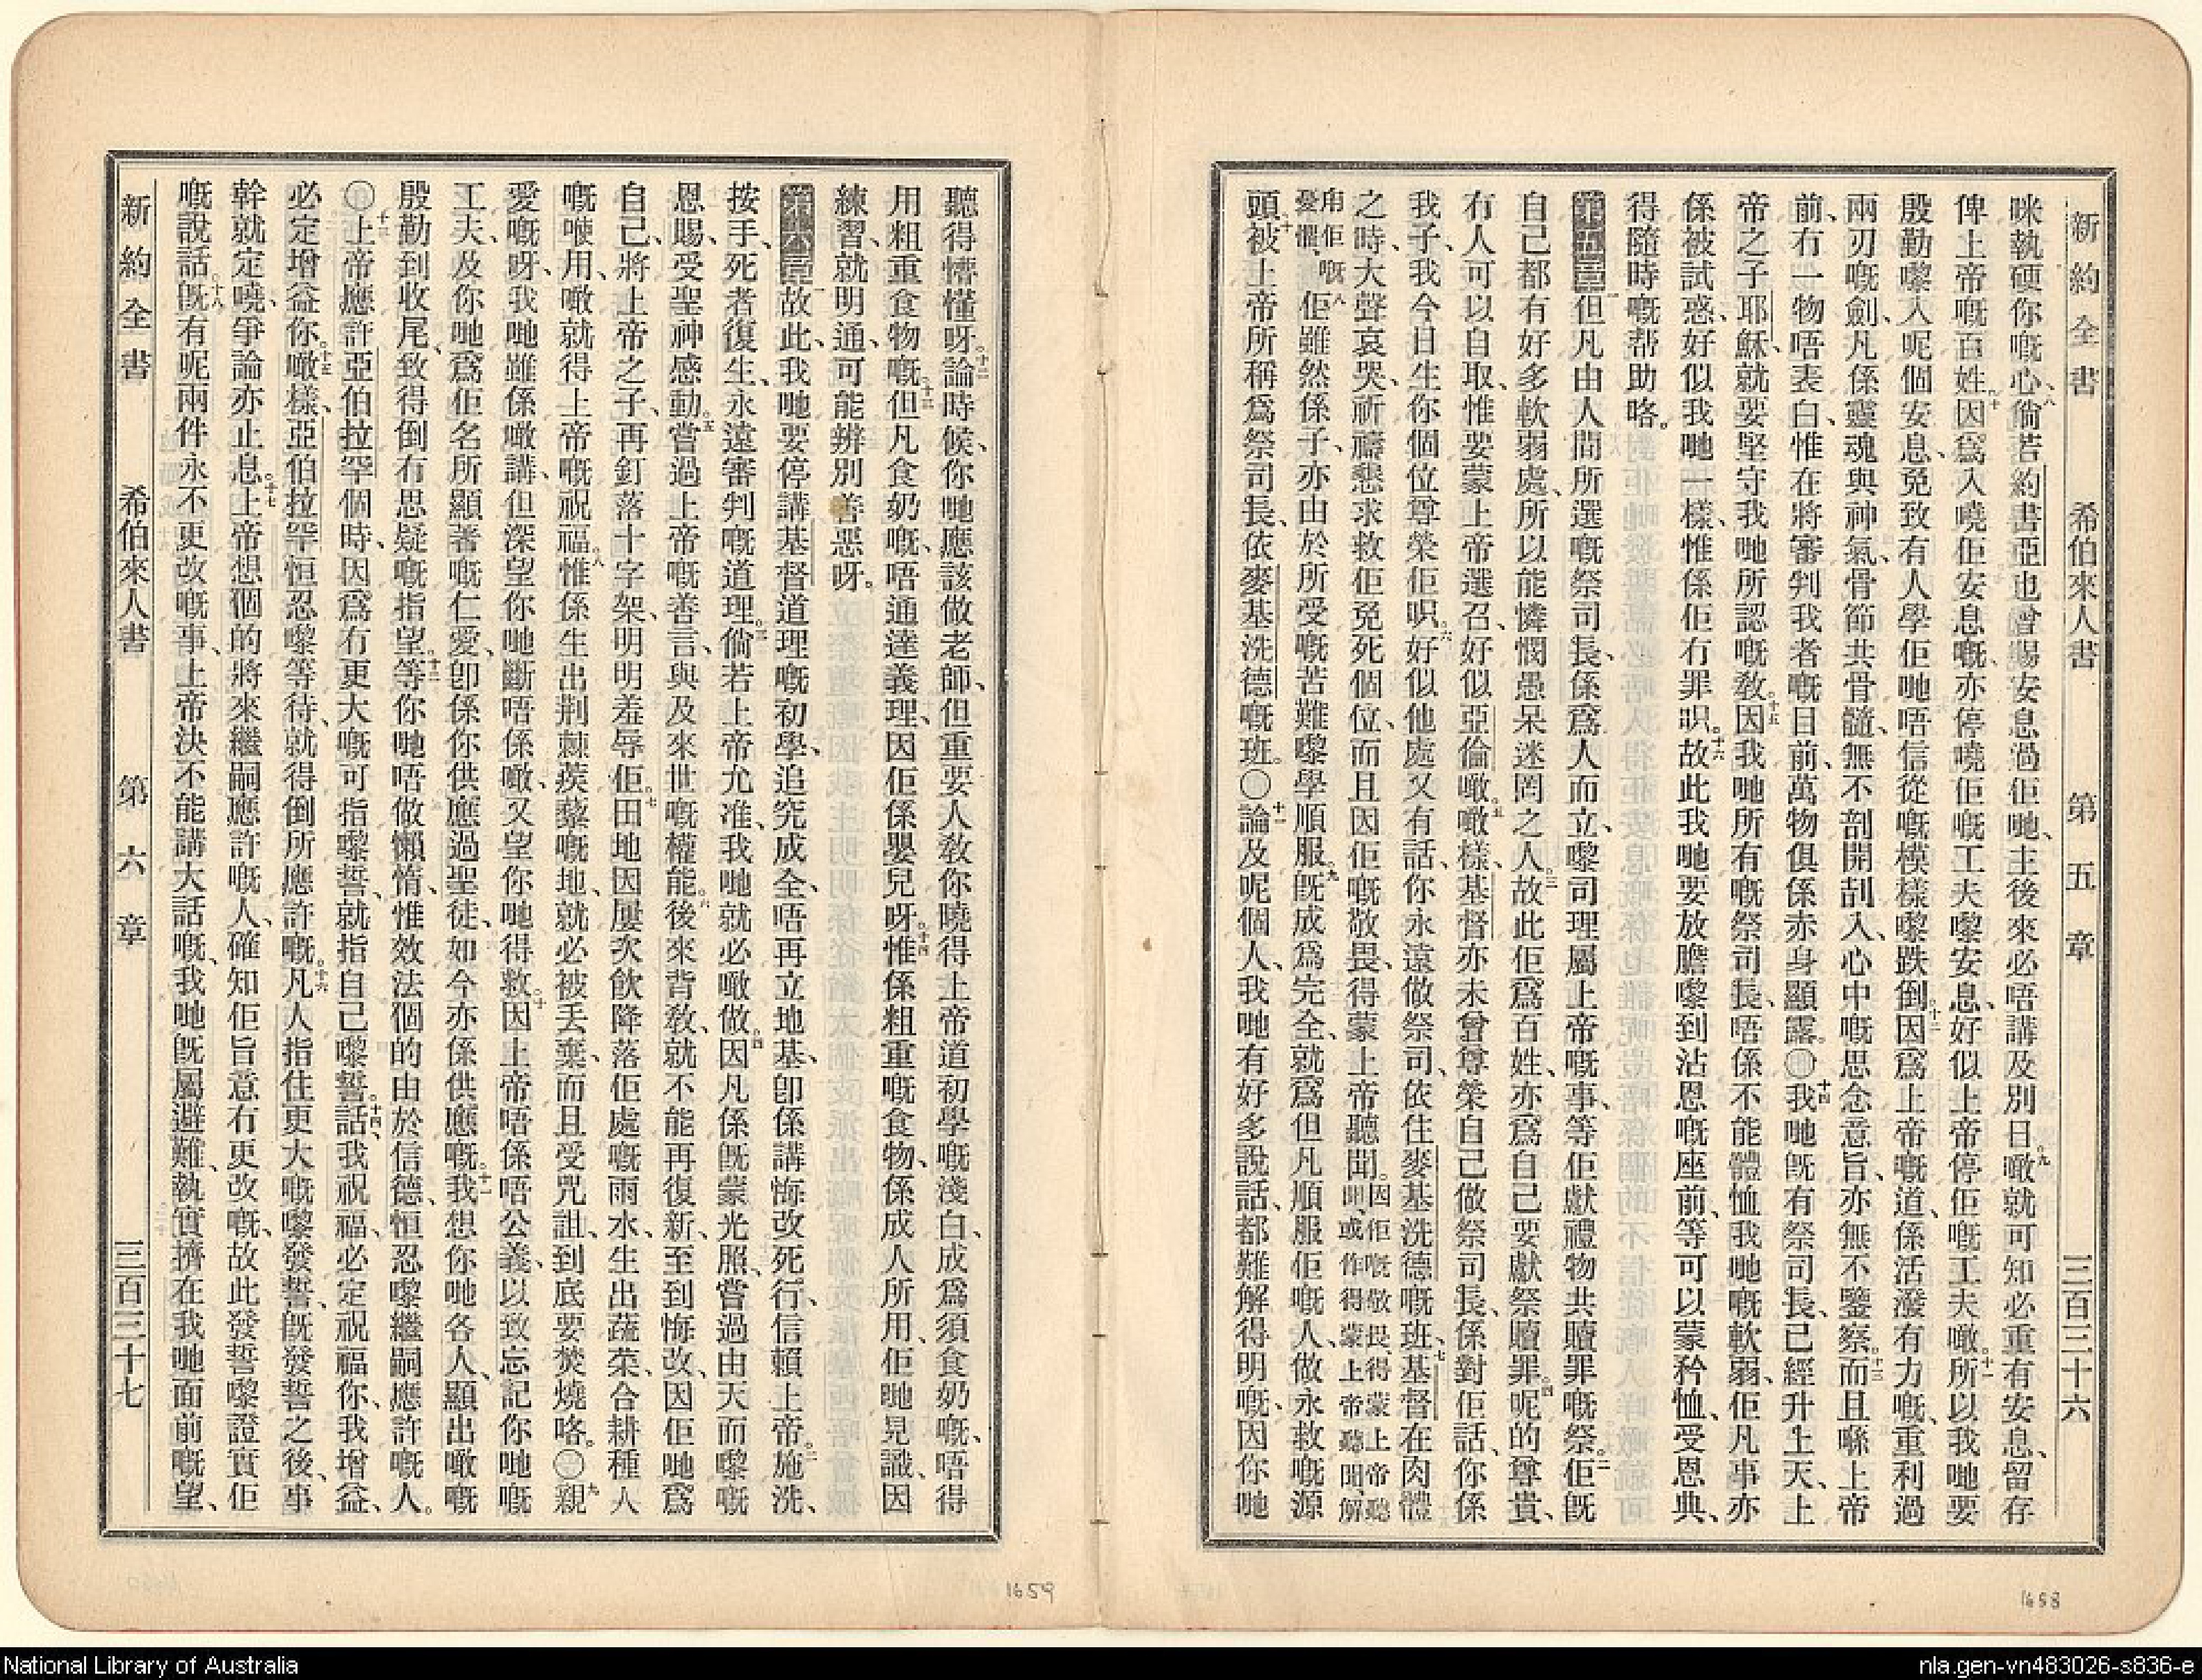 新約全書 希伯來人書 第五章 三百三十六
咪執硬你嘅心、八倘若約書亞也曾賜安息過佢哋、主後來必唔講及別日。九噉就可知必重有安息、留存
俾上帝嘅百姓。十因爲入嘵佢安息嘅、亦停嘵佢嘅工夫嚟安息、好似上帝停佢嘅工夫噉。十一所以我哋要
殷勤嚟入呢個安息、免致有人學佢哋唔信從嘅模樣嚟跌倒。十二因爲上帝嘅道、係活潑有力嘅、重利過
兩刃嘅劍、凡係靈魂與神氣、骨節共骨髓、無不剖開刮入、心中嘅思念意旨、亦無不鑒察。十三而且喺上帝
前、冇一物唔表白、惟在將審判我者嘅目前、萬物俱係赤身顯露。〇十四我哋旣有祭司長、已經升上天、上
帝之子耶穌、就要堅守我哋所認嘅教。十五因我哋所有嘅祭司長、唔係不能體恤我哋嘅軟弱、佢凡事亦
係被試惑、好似我哋一樣、惟係佢冇罪啫。十六故此我哋要放膽嚟到沾恩嘅座前、等可以蒙矜恤、受恩典、
得隨時嘅帮助咯。
第五章 一但凡由人間所選嘅祭司長、係爲人而立、嚟司理屬上帝嘅事、等佢獻禮物共贖罪嘅祭。二佢旣
自己都有好多軟弱處、所以能憐憫愚呆迷罔之人。三故此佢爲百姓、亦爲自己要獻祭贖罪。四呢的尊貴、
冇人可以自取、惟要蒙上帝選召、好似亞倫噉。五噉樣、基督亦未曾尊榮自己做祭司長、係對佢話、你係
我子、我今日生你個位尊榮佢啫。六好似他處又有話、你永遠做祭司、依住麥基洗德嘅班、七基督在肉體
之時、大聲哀哭、祈禱懇求救佢免死個位、而且因佢嘅敬畏、得蒙上帝聽聞。因佢嘅敬畏、得蒙上帝聽聞、或作得蒙上帝聽聞、解
甪佢嘅憂懼、八佢雖然係子、亦由於所受嘅苦難嚟學順服。九旣成爲完全、就爲但凡順服佢嘅人、做永救嘅源
頭、十被上帝所稱爲祭司長、依麥基洗德嘅班。〇十一論及呢個人、我哋有好多說話、都難解得明嘅、因你哋
聽得懵懂呀。十二論時候、你哋應該做老師、但重要人教你曉得上帝道初學嘅淺白、成爲須食奶嘅、唔得
用粗重食物嘅。十三但凡食奶嘅、唔通達義理、因佢係嬰兒呀。十四惟係粗重嘅食物、係成人所用、佢哋見識、因
練習、就明通、可能辨別善惡呀。
第六章 一故此、我哋要停講基督道理嘅初學、追究成全、唔再立地基、卽係講悔改死行、信賴上帝。二施洗、
按手、死者復生、永遠審判嘅道理。三倘若上帝允准、我哋就必噉做。四因凡係旣蒙光照、嘗過由天而嚟嘅
恩賜、受聖神感動。五嘗過上帝嘅善言、與及來世嘅權能。六後來背教、就不能再復新、至到悔改、因佢哋爲
自己、將上帝之子、再釘落十字架、明明羞辱佢。七田地因屢次飲降落佢處嘅雨水、生出蔬菜、合耕種人
嘅哽用、噉就得上帝嘅祝福。八惟係生出荆蕀蒺藜嘅地、就必被丢棄、而且受咒詛、到底要焚燒咯。〇九親
愛嘅呀、我哋雖係噉講、但深望你哋斷唔係噉、又望你哋得救。十因上帝唔係唔公義、以致忘記你哋嘅
工夫、及你哋爲佢名所顯著嘅仁愛、卽係你供應過聖徒、如今亦係供應嘅。十一我想你哋各人、顯出噉嘅
殷勤到收尾、致得倒冇思疑嘅指望。十二等你哋唔做懶惰、惟效法個的由於信德、恒忍嚟繼嗣應許嘅人。
〇十三上帝應許亞伯拉罕個時、因爲冇更大嘅可指嚟誓、就指自己嚟誓。十四話、我祝福、必定祝福你、我增益、
必定增益你。十五噉樣、亞伯拉罕恒忍嚟等待、就得倒所應許嘅。十六凡人指住更大嘅嚟發誓、旣發誓之後、事
幹就定嘵、爭論亦止息。十七上帝想個的將來繼嗣應許嘅人、確知佢旨意冇更改嘅、故此發誓嚟證實佢
嘅說話。十八旣有呢兩件永不更改嘅事、上帝決不能講大話嘅、我哋旣屬避難、執實擠在我哋面前嘅望、
新約全書 希伯來人書 第六章 三百三十七
1659
1658
National Library of Australia
nla.gen-vn483026-s836-e